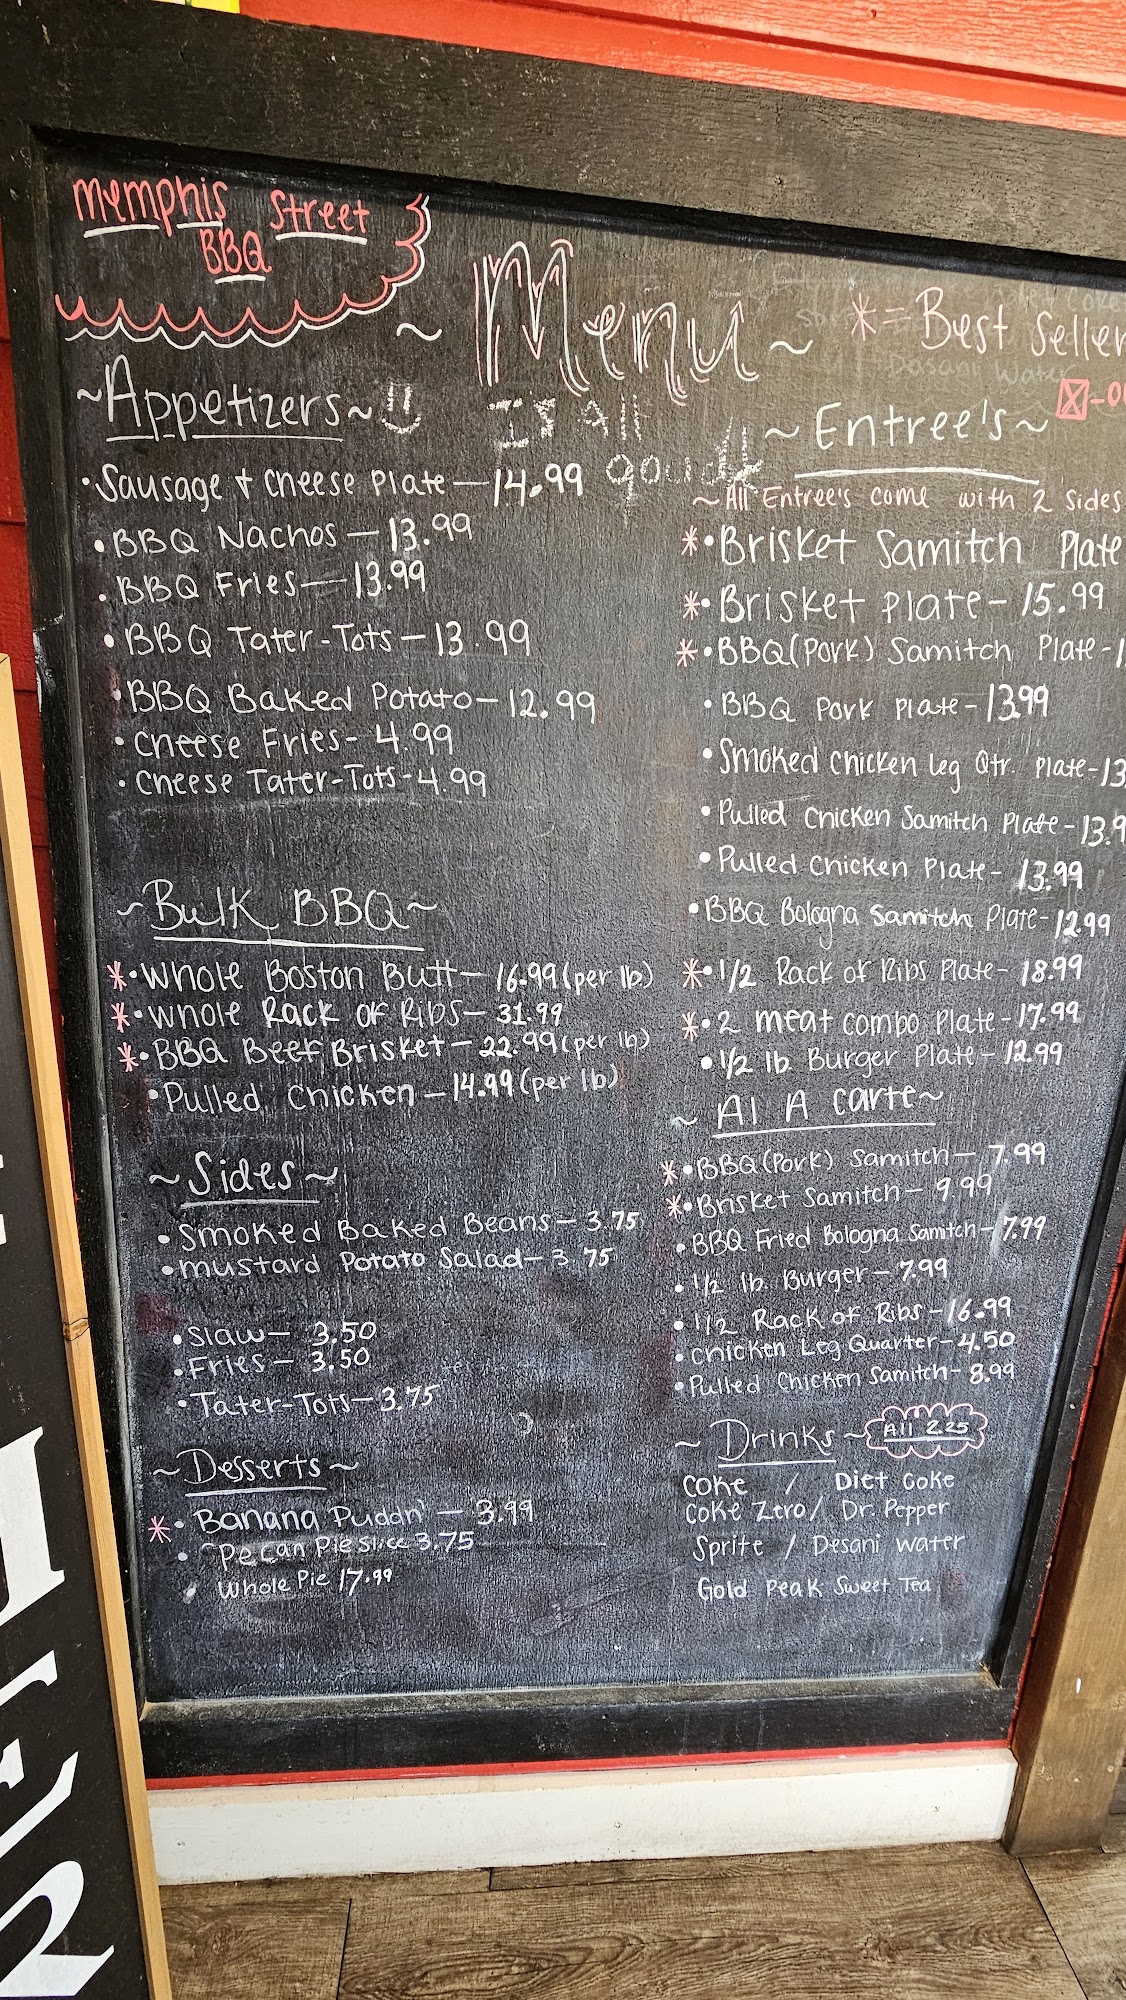 Memphis Street
BBQ
~ Menu ~
*= Best Seller
~Appetizers~
Is All
goudt
• Sausage + Cheese Plate — 14.99
• BBQ Nachos — 13.99
• BBQ Fries — 13.99
• BBQ Tater-Tots — 13.99
• BBQ Baked Potato — 12.99
• Cheese Fries - 4.99
• Cheese Tater-Tots - 4.99
~Bulk BBQ~
*• Whole Boston Butt — 16.99 (per lb)
*• Whole Rack of Ribs — 31.99
*• BBQ Beef Brisket — 22.99 (per lb)
• Pulled Chicken — 14.99 (per lb)
~Sides~
• Smoked Baked Beans — 3.75
• Mustard Potato Salad — 3.75
• Slaw — 3.50
• Fries — 3.50
• Tater-Tots — 3.75
~Desserts~
*• Banana Puddn' — 3.99
• Pecan Pie Slice 3.75
• Whole Pie 17.99
~ Entree's ~
~ All Entree's come with 2 Sides
*• Brisket Samitch Plate
*• Brisket Plate - 15.99
*• BBQ (Pork) Samitch Plate -
• BBQ Pork Plate - 13.99
• Smoked Chicken Leg Qtr. Plate - 13
• Pulled Chicken Samitch Plate - 13.9
• Pulled Chicken Plate - 13.99
• BBQ Bologna Samitch Plate - 12.99
*• 1/2 Rack of Ribs Plate - 18.99
*• 2 meat combo Plate - 17.99
• 1/2 lb. Burger Plate - 12.99
~ Al A carte ~
*• BBQ (Pork) Samitch — 7.99
*• Brisket Samitch — 9.99
• BBQ Fried Bologna Samitch — 7.99
• 1/2 lb. Burger — 7.99
• 1/2 Rack of Ribs - 16.99
• Chicken Leg Quarter - 4.50
• Pulled Chicken Samitch - 8.99
~ Drinks ~ All 2.25
Coke / Diet Coke
Coke Zero / Dr. Pepper
Sprite / Desani Water
Gold Peak Sweet Tea